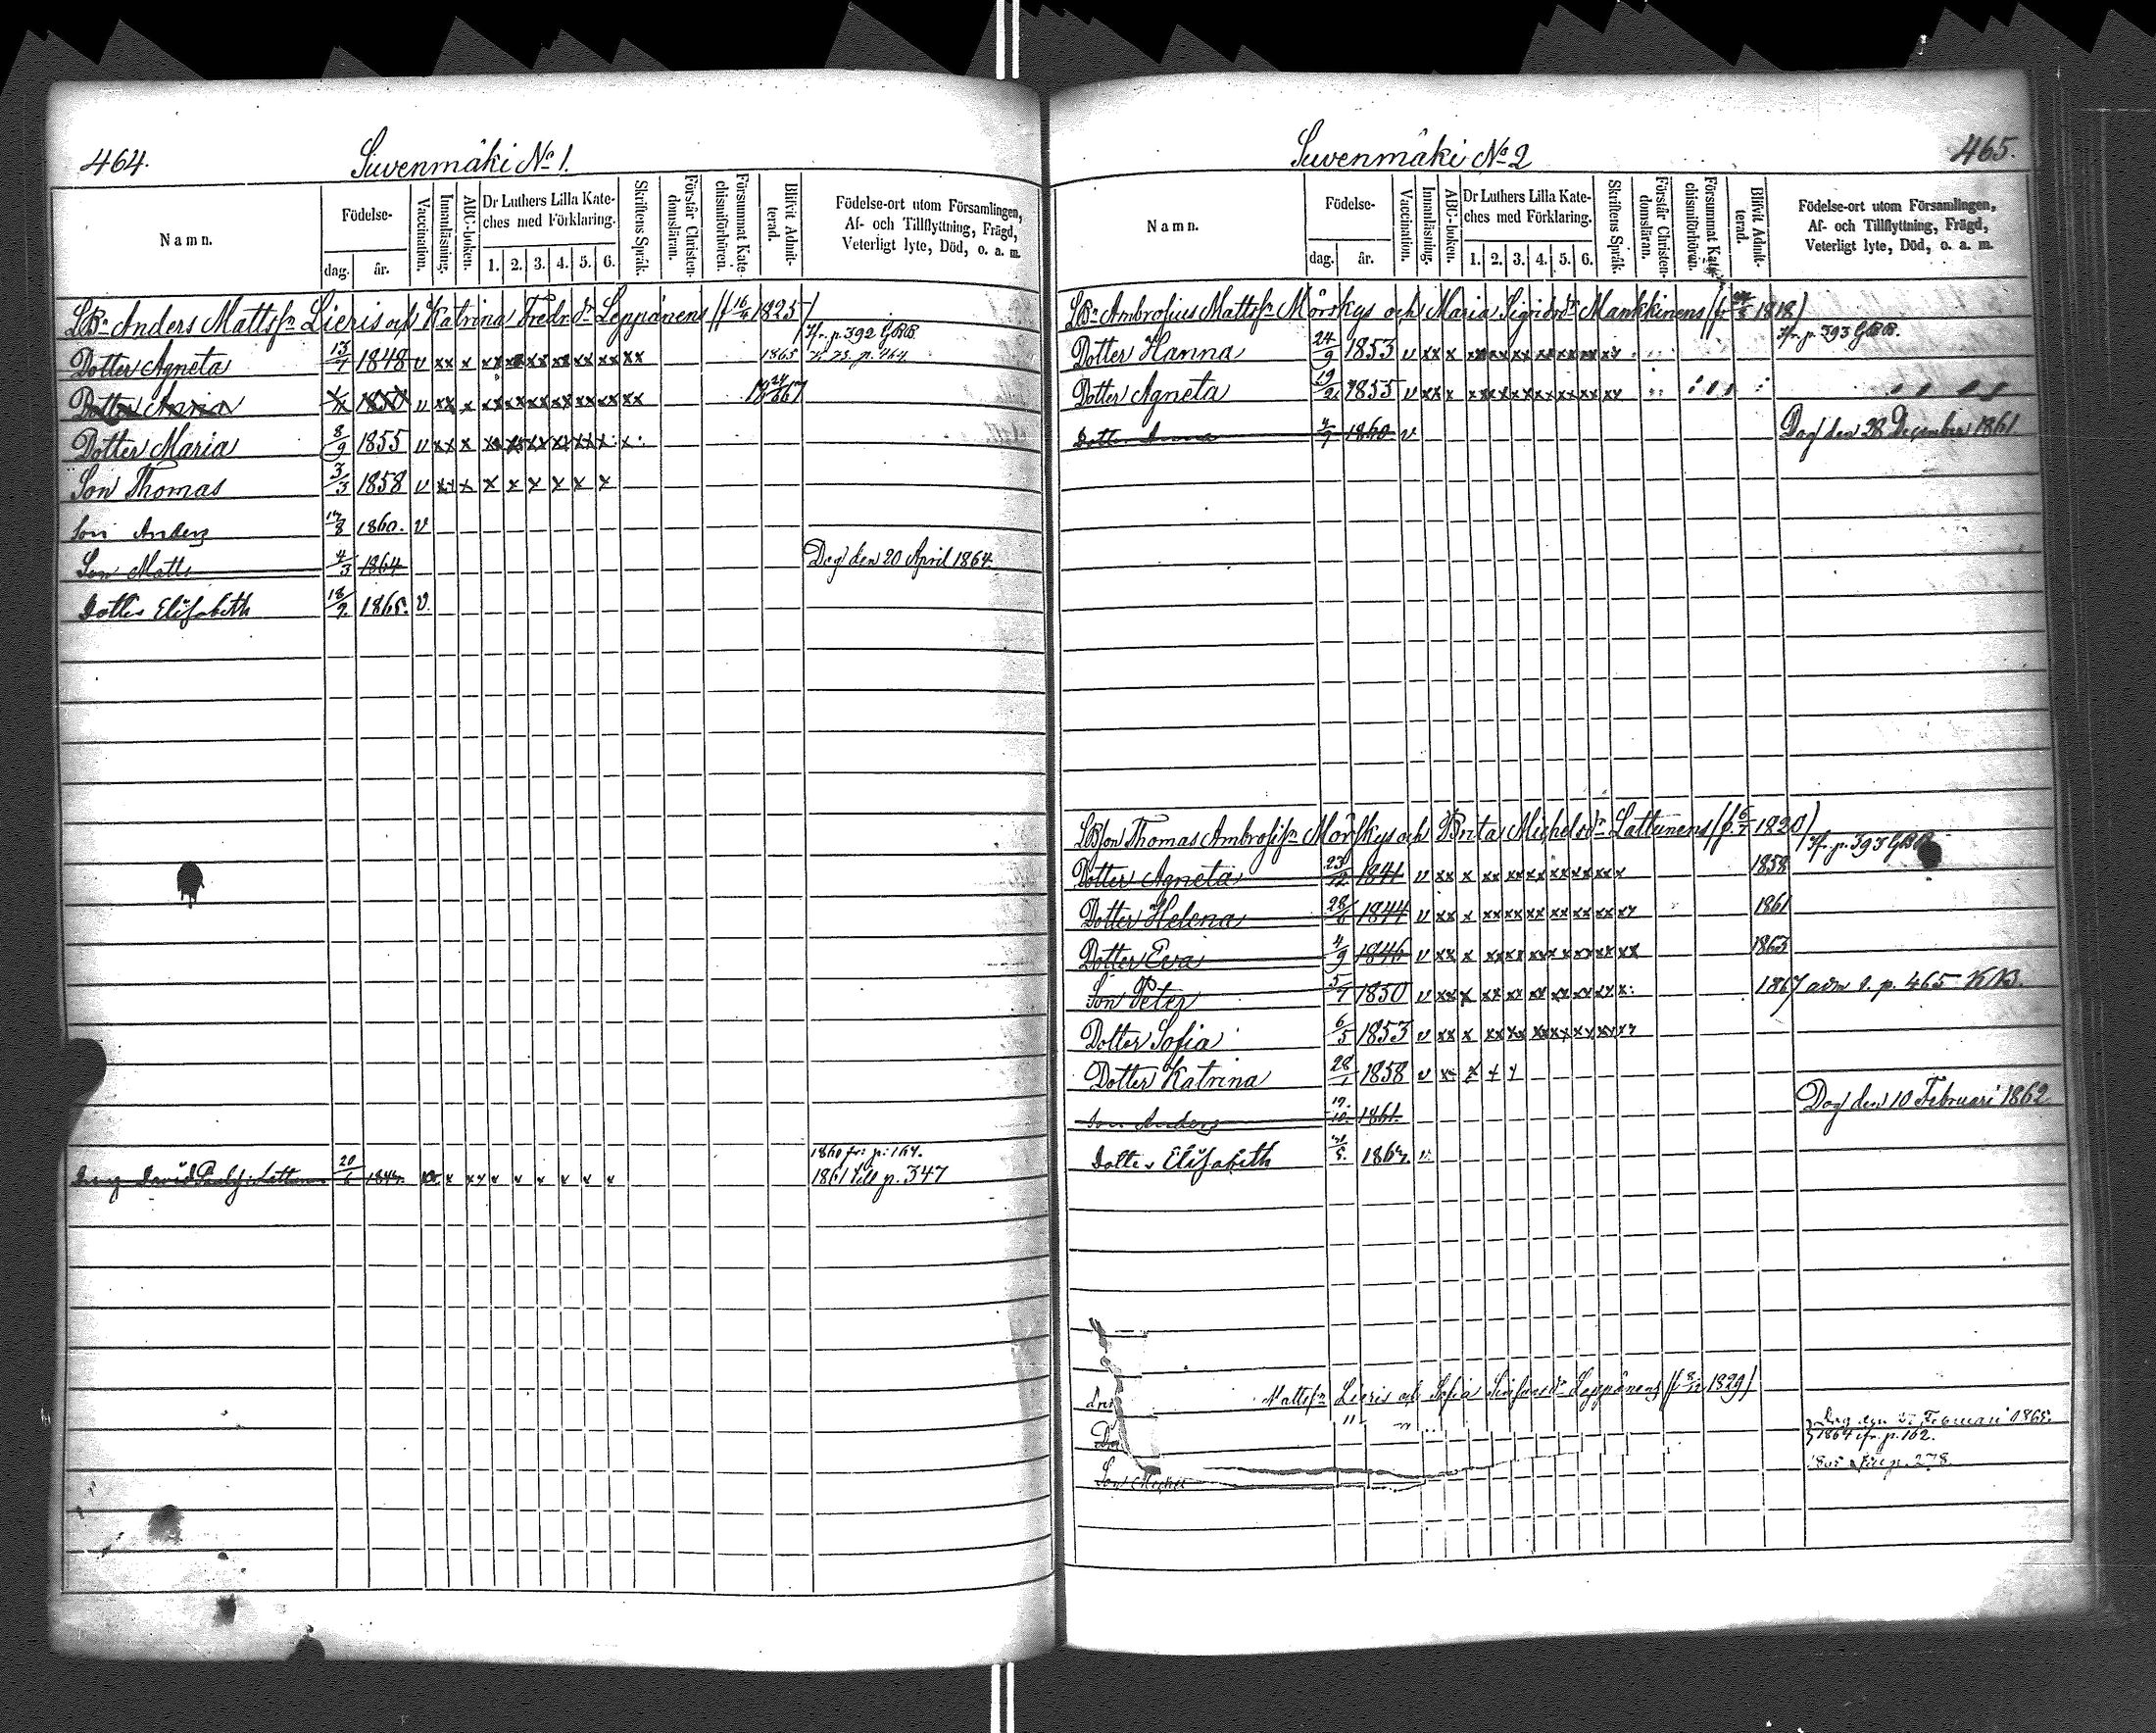 464.
Suvenmäki No 1.
Namn.
Födelse-
dag.
år.
Vaccination.
Innanläsning.
ABC-boken.
Dr Luthers Lilla Kate-
ches med Förklaring.
1. 2. 3. 4. 5. 6.
Skriftens Språk.
Förstår Christen-
domsläran.
Försummat Kate-
chismiförhören.
Blifvit Admit-
terad.
Födelse-ort utom Församlingen,
Af- och Tillflyttning, Frägd,
Veterligt lyte, Död, o. a. m.
LBn Anders Mattsn Lieris och Katrina Fredr.dr Leppänens (f 16/4 1825)
fr. p. 392 GBB.
Dotter Agneta 13/7 1848 v xx x xx xx xx xx xx xx xx 1865
Dotter Anna v xx x xx xx xx xx xx xx xx
Dotter Maria 8/9 1855 v xx x xx xx xx xx xx x
Son Thomas 3/3 1858 v xx x x x x x x x
Son Anders 1860. v
Son Matts 4/3 1864 Dog den 20 April 1864.
Dotter Elisabeth 18/9 1865. v
1860 fr: p: 164.
David 20/6 1861 till p. 347
Suvenmäki No 2
465.
Namn.
Födelse-
dag.
år.
Vaccination.
Innanläsning.
ABC-boken.
Dr Luthers Lilla Kate-
ches med Förklaring.
1. 2. 3. 4. 5. 6.
Skriftens Språk.
Förstår Christen-
domsläran.
Försummat Kate-
chismiförhören.
Blifvit Admit-
terad.
Födelse-ort utom Församlingen,
Af- och Tillflyttning, Frägd,
Veterligt lyte, Död, o. a. m.
LBn Ambrosius Mattsn Mörskys och Maria Sigfridsdr Mankkinens 1818)
fr. p. 393 GBB.
Dotter Hanna 24/9 1853 v xx x xx xx xx xx xx xx xx
Dotter Agneta 19/2 1855 v xx x xx xx xx xx xx xx xx
Dotter Anna 4/7 1860 v Dog den 28 December 1861
LBson Thomas Ambrosisn Mörskys och Brita Michelsdr Lattunens (f. 6/7 1820)
fr. p. 393 GBB
Dotter Agneta 23/12 1841 v xx x xx xx xx xx xx xx x 1858
Dotter Helena 28/6 1844 v xx x xx xx xx xx xx xx xx 1861
Dotter Eva 4/9 1846 v xx x xx xx xx xx xx xx xx 1863
Son Peter 5/7 1850 v xx x xx xx xx xx xx xx x 1867 adm s. p. 465 KB.
Dotter Sofia 6/5 1853 v xx x xx xx xx xx xx xx xx
Dotter Katrina 28/1 1858 v xx x x x
Son Anders 1861. Dog den 10 Februari 1862
Dotter Elisabeth v
Mattsn Lieris och Sofia Leppänens 1829)
Februari 1865.
1864 fr. p. 162.
p. 278.
Son Michel